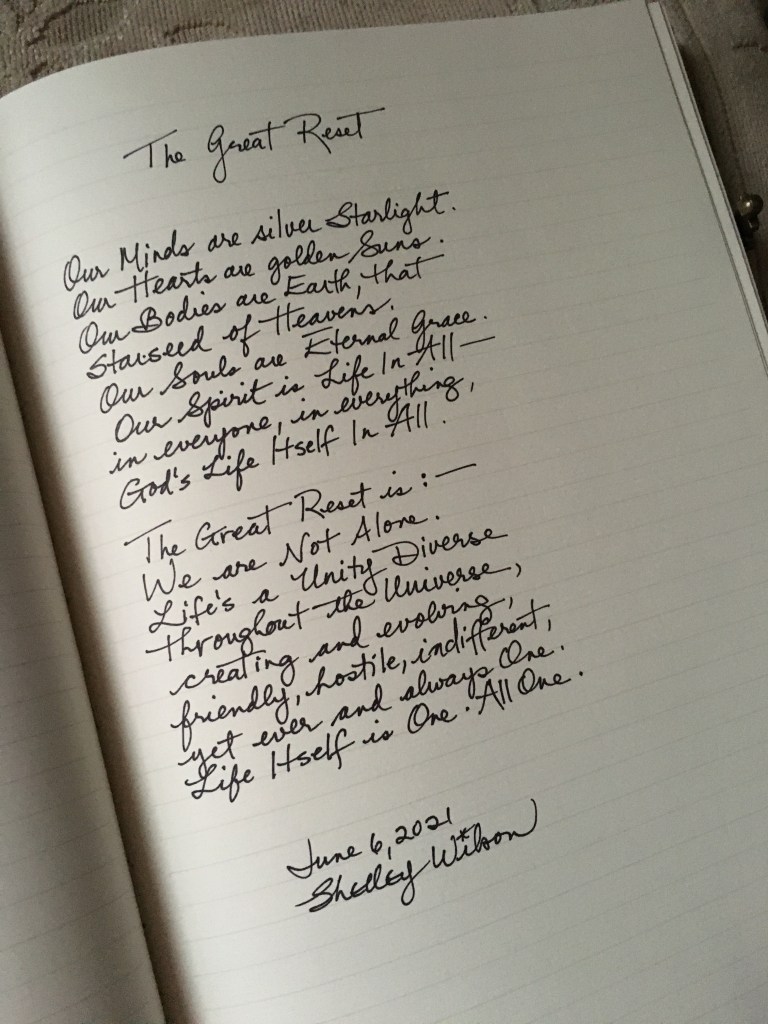 The Great Reset
Our Minds are silver Starlight.
Our Hearts are golden Suns.
Our Bodies are Earth, that
Starseed of Heavens.
Our Souls are Eternal Grace.
Our Spirit is Life In All —
in everyone, in everything,
God's Life Itself In All.
The Great Reset is : —
We are Not Alone.
Life's a Unity Diverse
throughout the Universe,
creating and evolving,
friendly, hostile, indifferent,
yet ever and always One.
Life Itself is One. All One.
June 6, 2021
Shelley Wilson